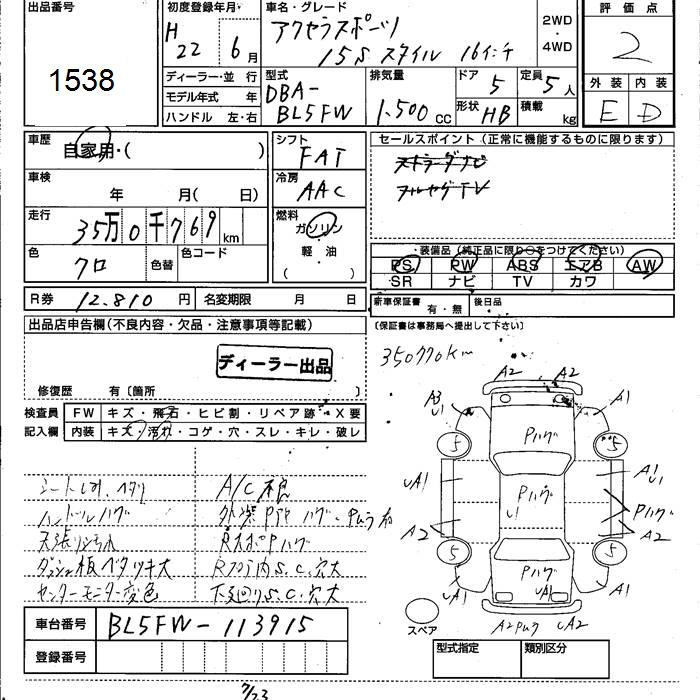 出品番号
1538
初度登録年月
H 22 6月
車名・グレード
アクセラスポーツ
15S スタイル 16インチ
2WD
・
4WD
評価点
2
ディーラー・並 行
モデル年式 年
ハンドル 左・右
型式
DBA-
BL5FW
排気量
1.500 cc
ドア 5
定員 5人
形状 HB
積載 kg
外装 内装
E D
車歴
自家用・( )
車検
年 月( 日)
走行
35万0千769km
色
クロ
色替
色コード
R券 12.810円
名変期限 月 日
シフト
FAT
冷房
AAC
燃料
ガソリン
軽 油
( )
セールスポイント (正常に機能するものに限ります)
フルセグTV
装備品(純正品に限り○をつけてください)
PS PW ABS エアB AW
SR ナビ TV カワ
新車保証書 有・無
後日品
(保証書は事務局へ提出して下さい)
出品店申告欄(不良内容・欠品・注意事項等記載)
ディーラー出品
修復歴 有〔箇所 〕
検査員 FW キズ・飛石・ヒビ割・リペア跡・X要
記入欄 内装 キズ・汚れ・コゲ・穴・スレ・キレ・破レ
350770km
A2 A2
A3
U1
A1
Pハゲ
5 5
A1
A1
U1
Pハゲ
U1
Pハゲ
A2
A2
5 5
Pハゲ
A1
A1
スペア
A2
A2
A/C不良
ハンドルハゲ
天張リ汚れ
ダッシュ板ベタツキ大
R大ポPハゲ
センターモニター変色
下廻リS.C.穴大
車台番号 BL5FW-113915
登録番号
型式指定 類別区分
7/23